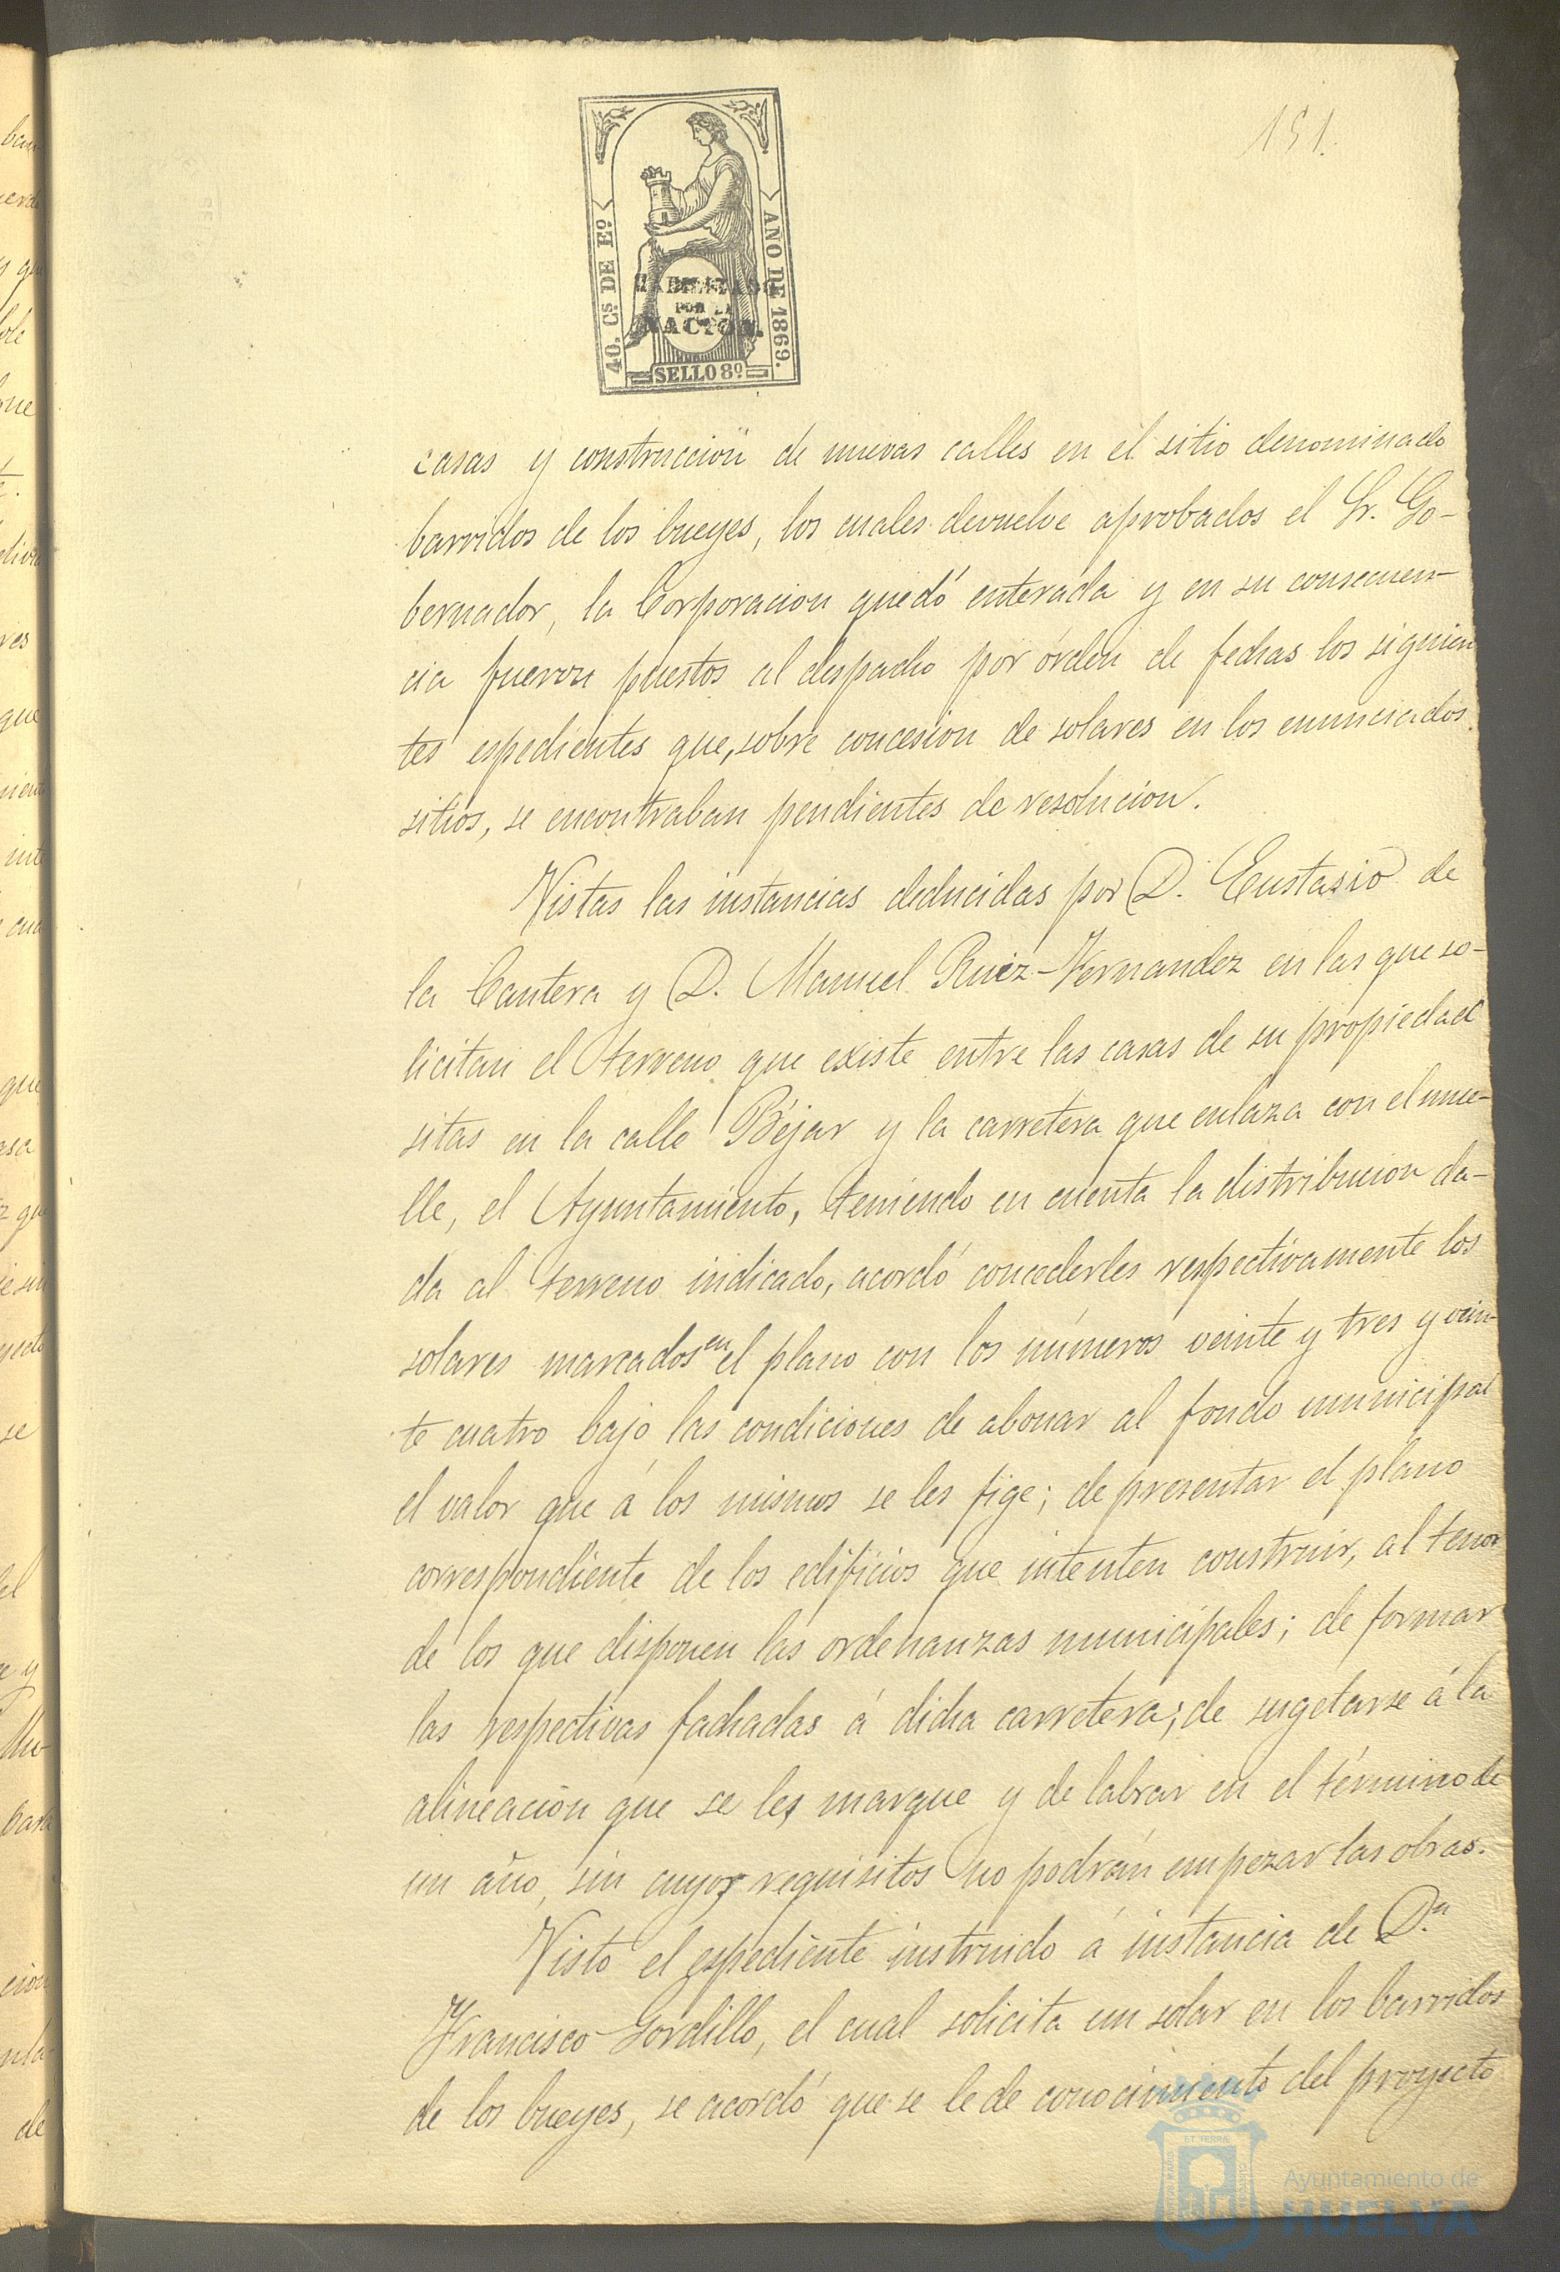 151.
40. Cs DE Eº
AÑO DE 1869.
HABILITADO
POR LA
NACION.
SELLO 8º
casas y construccion de nuevas calles en el sitio denominado
barridos de los bueyes, los cuales devuelve aprobados el Sr. Go-
bernador, la Corporacion quedó enterada y en su consecuen-
cia fueron puestos al despacho por órden de fechas los siguien
tes espedientes que, sobre concesion de solares en los enunciados
sitios, se encontraban pendientes de resolucion.
Vistas las instancias deducidas por D. Eustasio de
la Cantera y D. Manuel Ruiz-Hernandez en las que so-
licitan el terreno que existe entre las casas de su propiedad
sitas en la calle Béjar y la carretera que enlaza con el mue-
lle, el Ayuntamiento, teniendo en cuenta la distribucion da-
da al terreno indicado, acordó concederles respectivamente los
solares marcados en el plano con los números veinte y tres y vein-
te cuatro bajo las condiciones de abonar al fondo municipal
el valor que á los mismos se les fige; de presentar el plano
correspondiente de los edificios que intenten construir, al tenor
de los que disponen las ordenanzas municipales; de formar
las respectivas fachadas á dicha carretera; de sugetarse á la
alineacion que se les marque y de labrar en el término de
un año, sin cuyos requisitos no podrán empezar las obras.
Visto el espediente instruido á instancia de D.n
Francisco Gordillo, el cual solicita un solar en los barridos
de los bueyes, se acordó que se le de conocimiento del proyecto
Ayuntamiento de
HUELVA